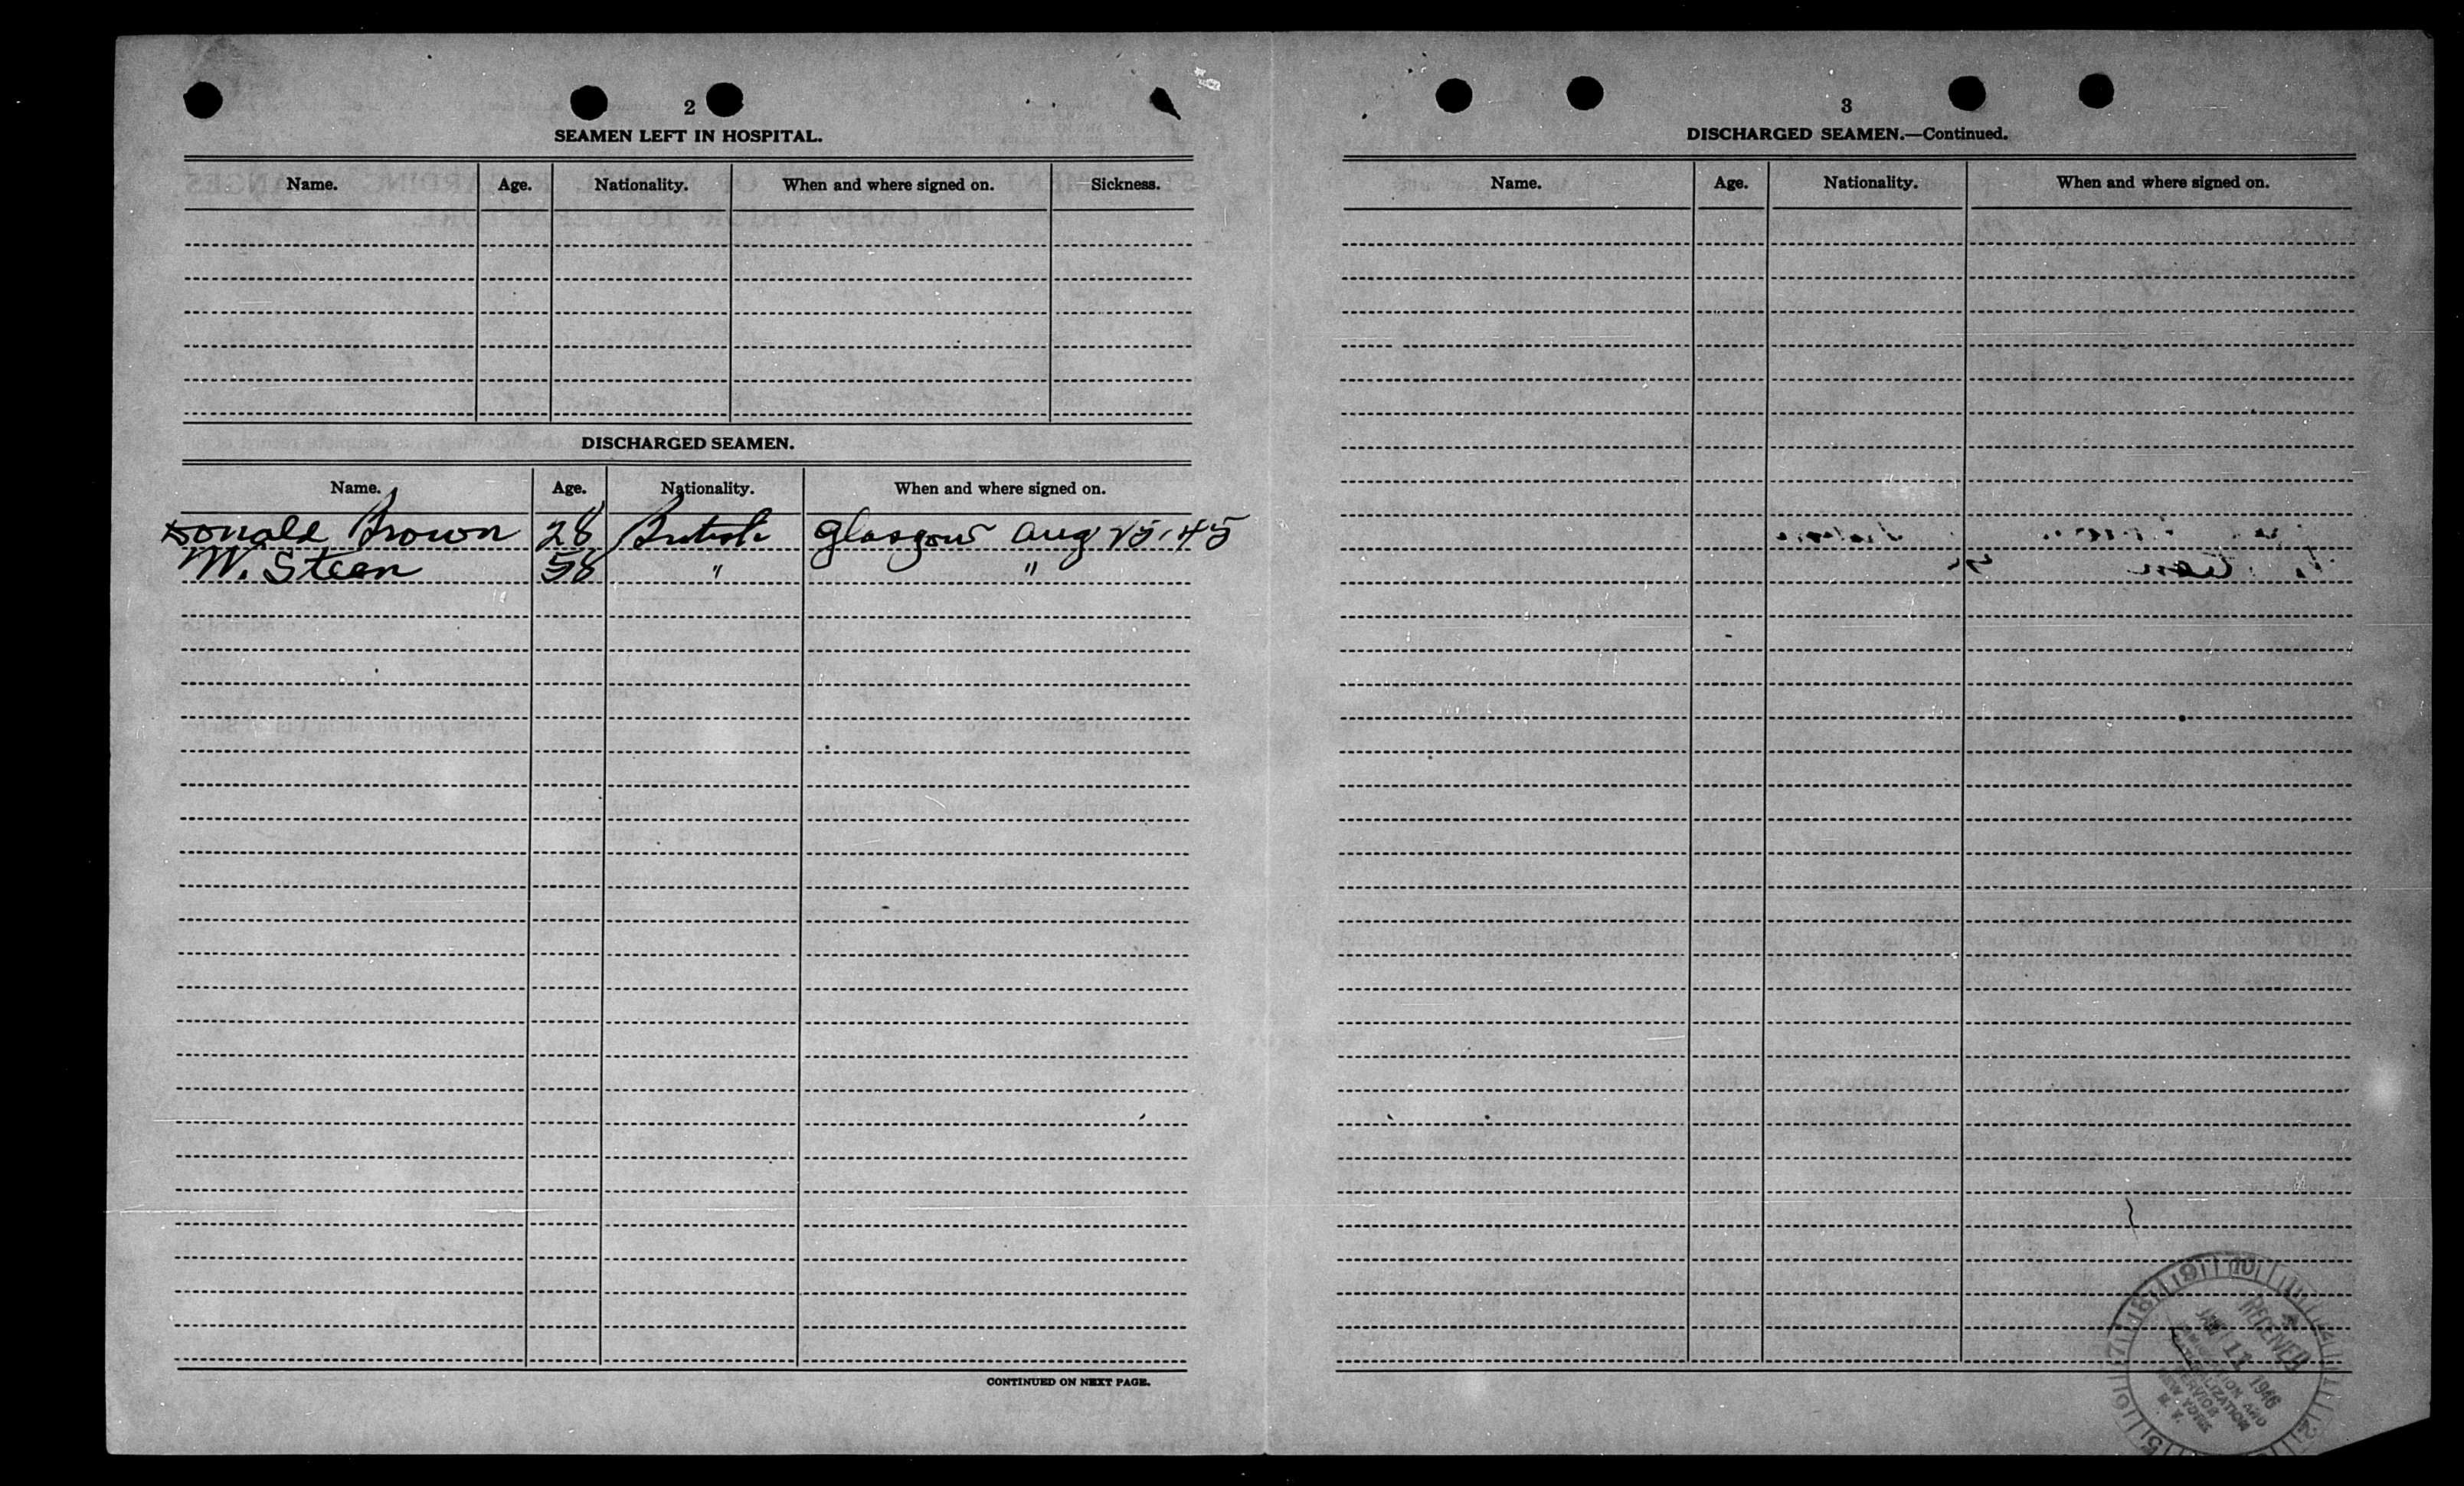 2
SEAMEN LEFT IN HOSPITAL.
Name. Age. Nationality. When and where signed on. Sickness.
DISCHARGED SEAMEN.
Name. Age. Nationality. When and where signed on.
Donald Brown 28 British Glasgow Aug 25-45
W. Steen 58 " "
CONTINUED ON NEXT PAGE.
3
DISCHARGED SEAMEN.—Continued.
Name. Age. Nationality. When and where signed on.
RECEIVED
11 1946
IMMIGRATION AND
NATURALIZATION
SERVICE
NEW YORK
N. Y.